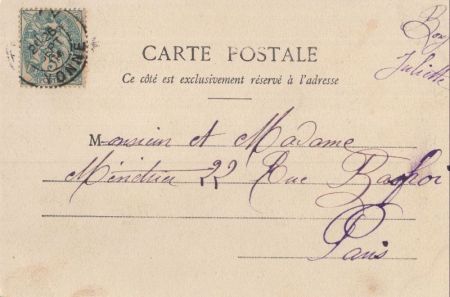 YONNE
CARTE POSTALE
Ce côté est exclusivement réservé à l'adresse
Juliette
Monsieur et Madame
22 Rue
Paris